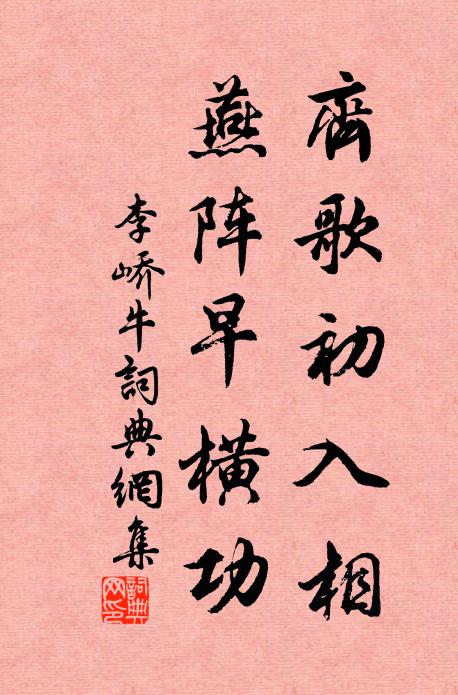 齊歌初入相
燕阵早橫功
李峤牛詞典網集
詞典网印